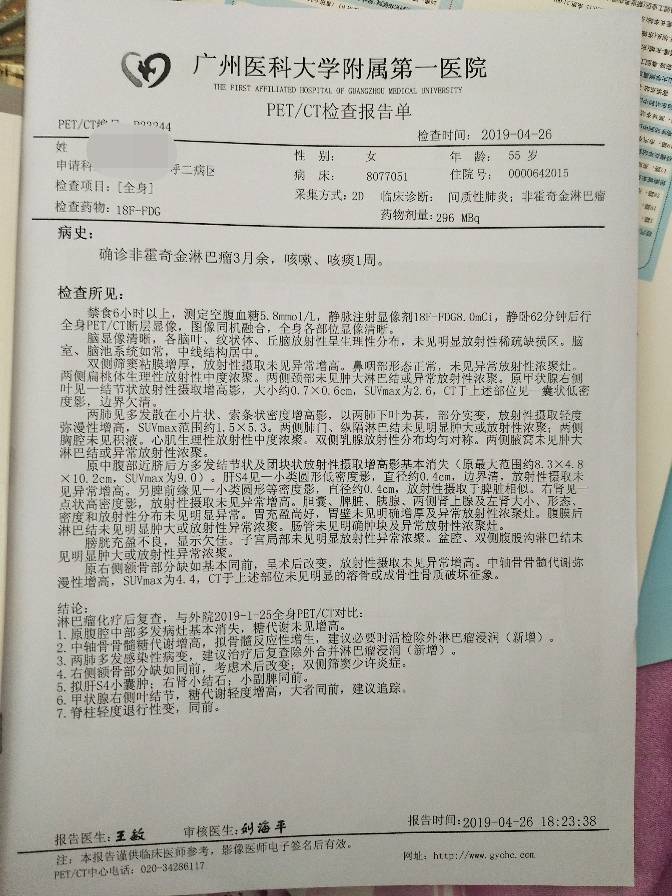 广州医科大学附属第一医院
THE FIRST AFFILIATED HOSPITAL OF GUANGZHOU MEDICAL UNIVERSITY
PET/CT检查报告单
PET/CT编号
检查时间: 2019-04-26
姓
性 别: 女
年 龄: 55 岁
申请科
呼二病区
病 床: 8077051
住院号: 0000642015
检查项目: [全身]
采集方式: 2D
临床诊断: 间质性肺炎; 非霍奇金淋巴瘤
检查药物: 18F-FDG
药物剂量: 296 MBq
病史:
确诊非霍奇金淋巴瘤3月余，咳嗽、咳痰1周。
检查所见:
禁食6小时以上，测定空腹血糖5.8mmol/L，静脉注射显像剂18F-FDG8.0mCi，静卧62分钟后行
全身PET/CT断层显像，图像同机融合，全身各部位显像清晰。
脑显像清晰，各脑叶、纹状体、丘脑放射性呈生理性分布，未见明显放射性稀疏缺损区。脑
室、脑池系统如常，中线结构居中。
双侧筛窦粘膜增厚，放射性摄取未见异常增高。鼻咽部形态正常，未见异常放射性浓聚灶。
两侧扁桃体生理性放射性中度浓聚。两侧颈部未见肿大淋巴结或异常放射性浓聚。原甲状腺右侧
叶见一结节状放射性摄取增高影，大小约0.7×0.6cm，SUVmax为2.6，CT于上述部位见一囊状低密
度影，边界欠清。
两肺见多发散在小片状、索条状密度增高影，以两肺下叶为甚，部分实变，放射性摄取轻度
弥漫性增高，SUVmax范围约1.5×5.3。两侧肺门、纵隔淋巴结未见明显肿大或放射性浓聚；两侧
胸腔未见积液。心肌生理性放射性中度浓聚。双侧乳腺放射性分布均匀对称。两侧腋窝未见肿大
淋巴结或异常放射性浓聚。
原中腹部近脐后方多发结节状及团块状放射性摄取增高影基本消失（原最大范围约8.3×4.8
×10.2cm，SUVmax为9.0）。肝S4见一小类圆形低密度影，直径约0.4cm，边界清，放射性摄取未
见异常增高。另脾前缘见一小类圆形等密度影，直径约0.4cm，放射性摄取于脾脏相似。右肾见一
点状高密度影，放射性摄取未见异常增高。胆囊、脾脏、胰腺、两侧肾上腺及左肾大小、形态、
密度和放射性分布未见明显异常。胃充盈尚好，胃壁未见明确增厚及异常放射性浓聚灶。腹膜后
淋巴结未见明显肿大或放射性异常浓聚。肠管未见明确肿块及异常放射性浓聚灶。
膀胱充盈不良，显示欠佳。子宫局部未见明显放射性异常浓聚。盆腔、双侧腹股沟淋巴结未
见明显肿大或放射性异常浓聚。
原右侧额骨部分缺如基本同前，呈术后改变，放射性摄取未见异常增高。中轴骨骨髓代谢弥
漫性增高，SUVmax为4.4，CT于上述部位未见明显的溶骨或成骨性骨质破坏征象。
结论:
淋巴瘤化疗后复查，与外院2019-1-25全身PET/CT对比:
1.原腹腔中部多发病灶基本消失，糖代谢未见增高。
2.中轴骨骨髓糖代谢增高，拟骨髓反应性增生，建议必要时活检除外淋巴瘤浸润（新增）。
3.两肺多发感染性病变，建议治疗后复查除外合并淋巴瘤浸润（新增）。
4.右侧额骨部分缺如同前，考虑术后改变；双侧筛窦少许炎症。
5.拟肝S4小囊肿；右肾小结石；小副脾同前。
6.甲状腺右侧叶结节，糖代谢轻度增高，大者同前，建议追踪。
7.脊柱轻度退行性变，同前。
报告医生: 王敏
审核医生: 刘海平
报告时间: 2019-04-26 18:23:38
注: 本报告谨供临床医师参考，影像医师电子签名后有效。
网址: http://www.gyohc.com
PET/CT中心电话: 020-34286117